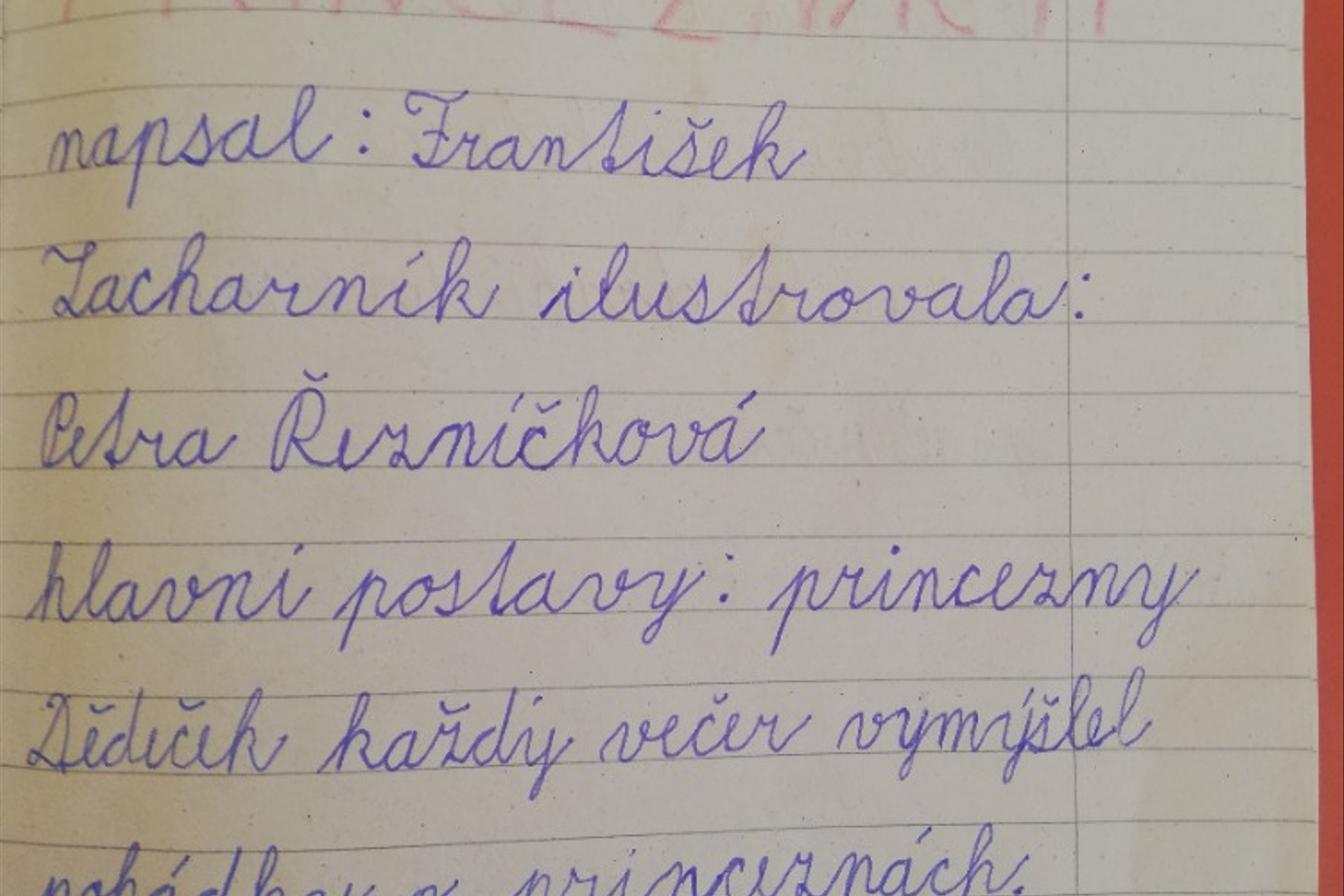 PRINCEZNÁCH
napsal: František
Zacharník ilustrovala:
Petra Řezníčková
hlavní postavy: princezny
Dědeček každý večer vymýšlel
pohádkou o princeznách.